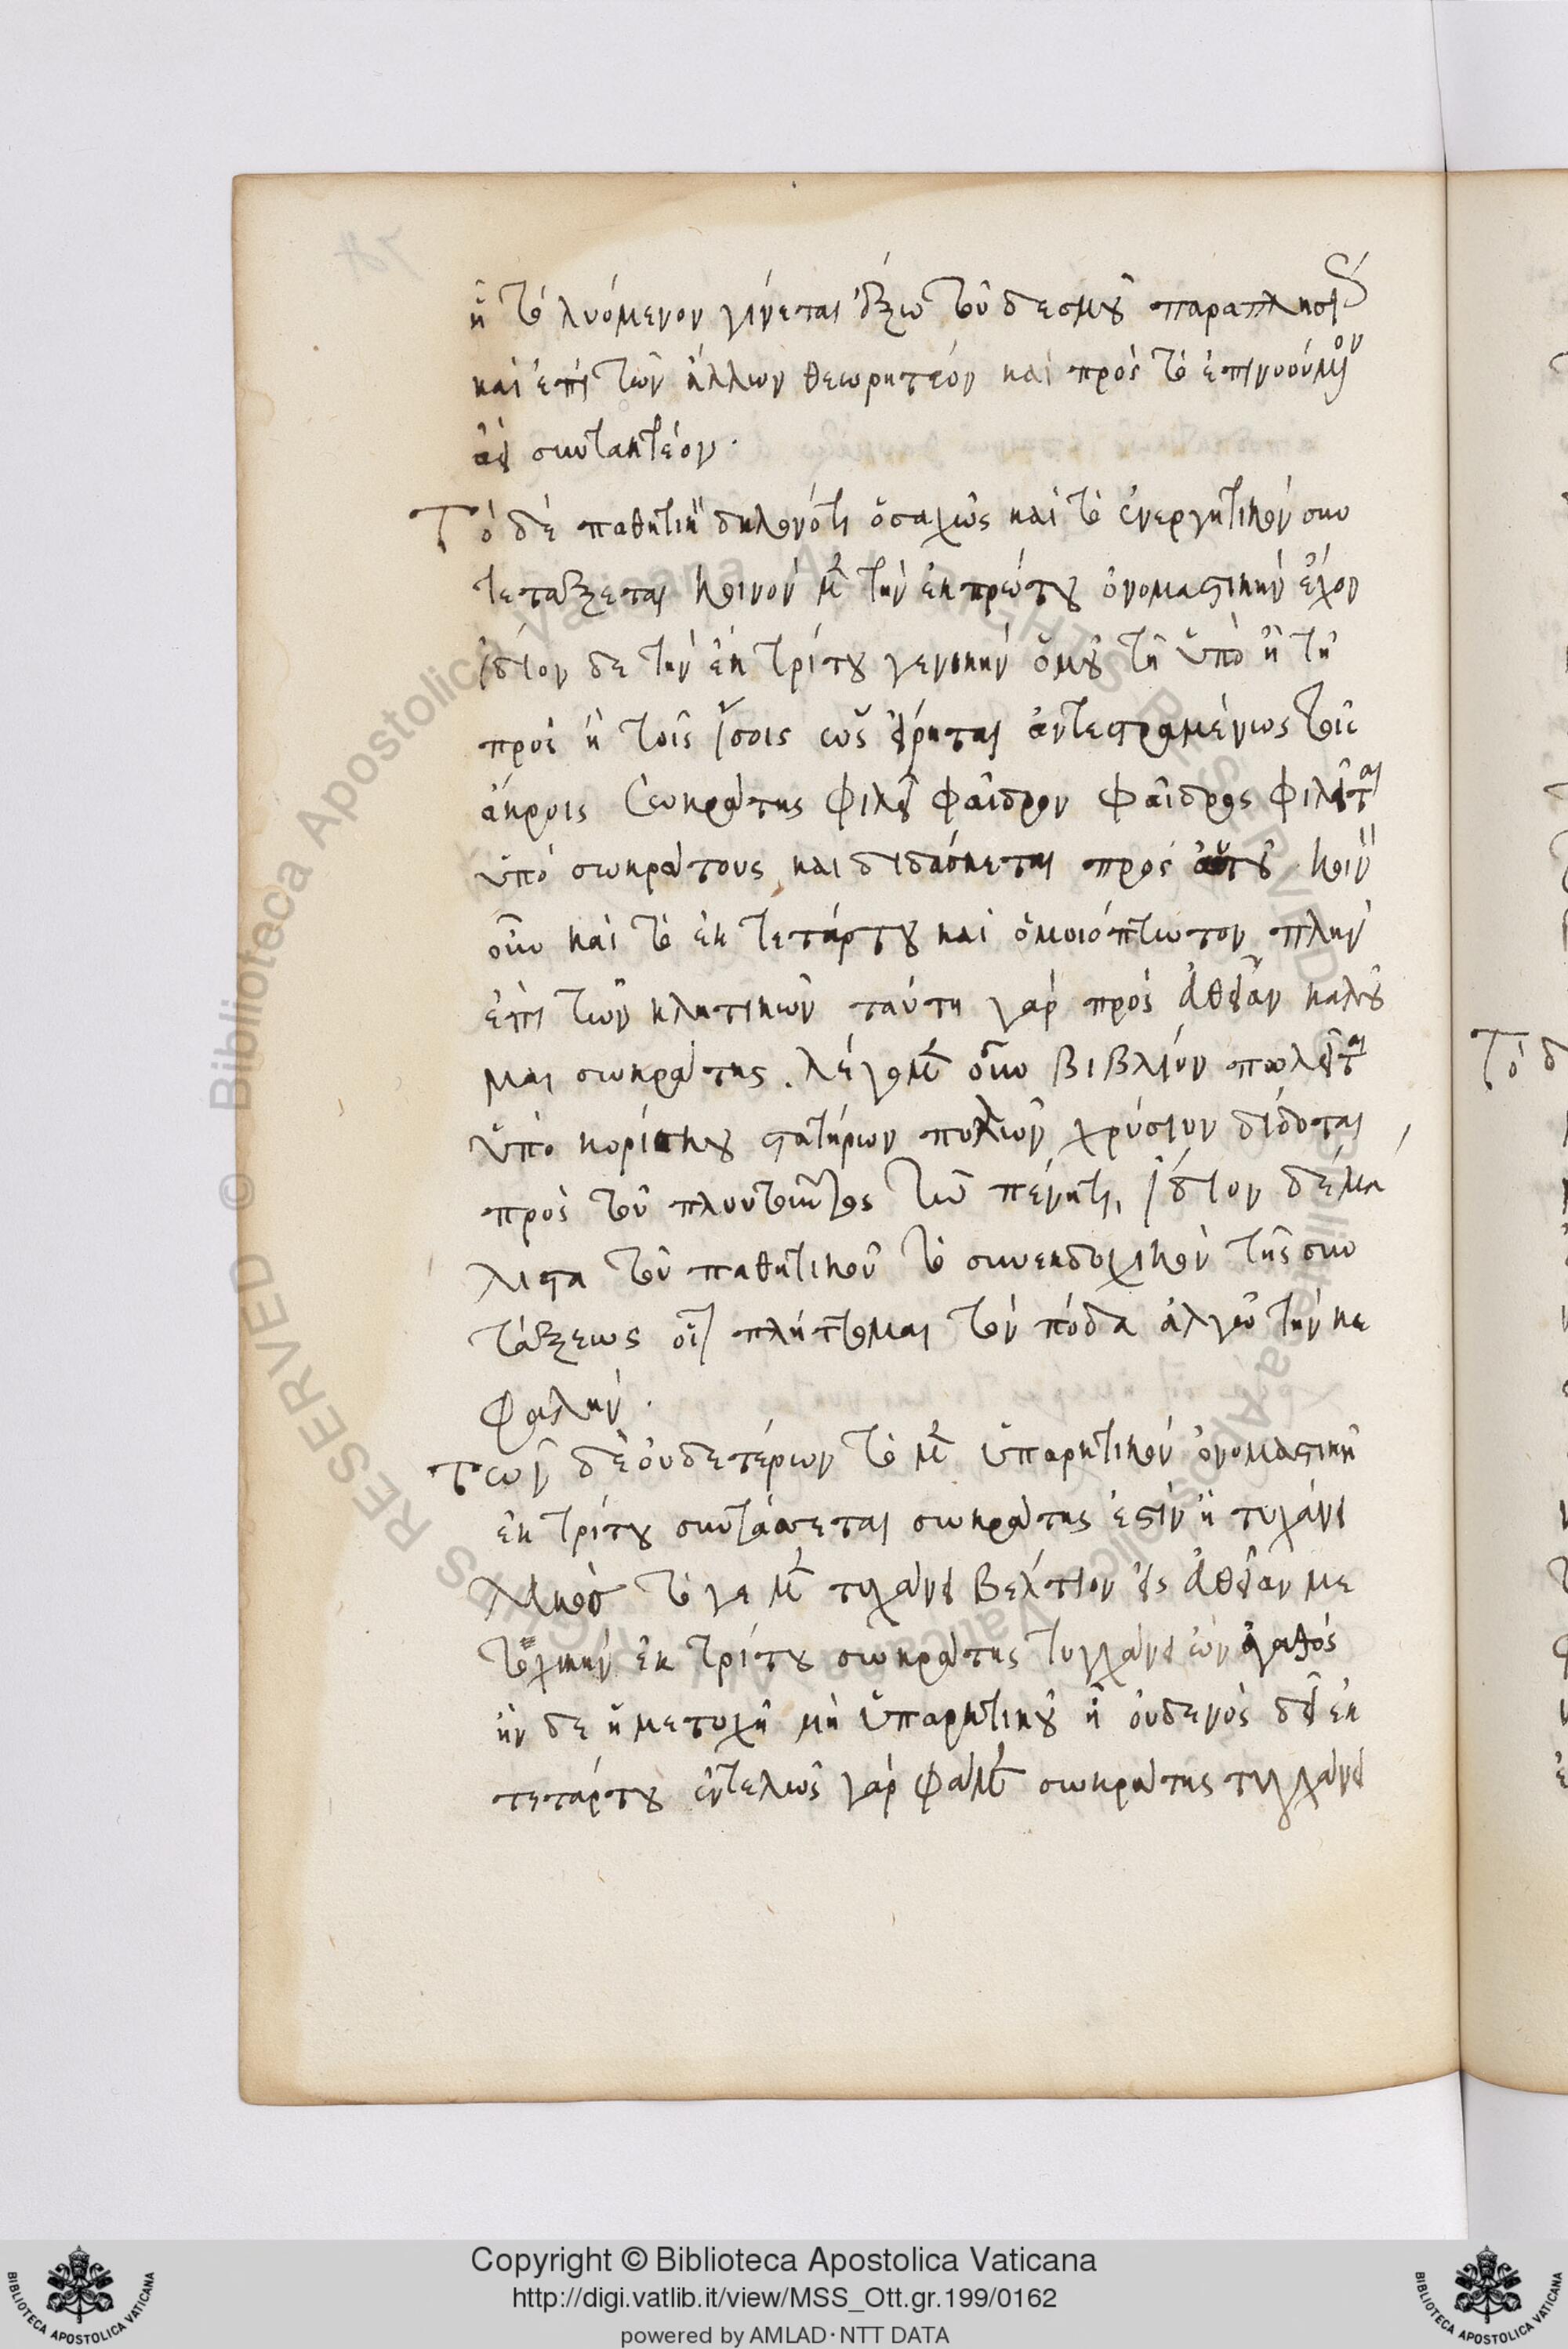 ᾗ τὸ λυόμενον γίνεται ἔξω τοῦ δεσμοῦ παραπλησίως
καὶ ἐπὶ τῶν ἄλλων θεωρητέον καὶ πρὸς τὸ ἐπινοούμενον
ἀεὶ συντακτέον.
Τὸ δὲ παθητικὸν δηλονότι ὁσαχῶς καὶ τὸ ἐνεργητικὸν συν
τετάξεται κοινὸν μὲν τὴν ἐκ πρώτου ὀνομαστικὴν ἔχον
ἴδιον δε τὴν ἐκ τρίτου γενικὴν ὁμοῦ τῇ ὑπὸ ἢ τῇ
πρὸς ἢ τοῖς ἴσοις ὡς εἴρηται ἀντεστραμένως τοῖς
ἄκροις Σωκράτης φιλεῖ φαῖδρον φαῖδρος φιλεῖται
ὑπὸ σωκράτους, και διδάσκεται πρὸς αὐτοῦ. κοινὸν
οὖν καὶ τὸ ἐκ τετάρτου καὶ ὁμοιόπτωτον πλὴν
ἐπὶ τῶν κλητικῶν ταύτη γὰρ πρὸς ἀλήθειαν καλοῦ
μαι σωκράτης. λέγομεν οὖν βιβλίον πωλεῖται
ὑπὸ κορίσκου στατήρων πολλῶν χρύσεον δίδοται
πρὸς τοῦ πλουτοῦντος τῷ πένητι, ἴδιον δὲ μά
λιστα τοῦ παθητικοῦ τὸ συνεκδοχικὸν τῆς συν
τάξεως οἷον πλήττομαι τὸν πόδα ἀλγῶ τὴν κε
φαλήν.
Τῶν δὲ οὐδετέρων τὸ μὲν ὑπαρκτικὸν ὀνομαστικῇ
ἐκ τρίτου συντάσσεται σωκράτης ἐστὶν ἢ τυχάνει
λευκὸσ τό γε μὲν τυχάνει βέλτιον εἰς ἀλήθειαν με
τοχικὴν ἐκ τρίτου σωκράτης τυγχάνει ὢν ἀγαθός
ἢν δε ἡ μετοχὴ μὴ ὑπαρκτικοῦ ᾖ οὐδενὸς δεῖ ἐκ
τετάρτου ἐντελῶς γὰρ φαμὲν σωκράτης τυγχάνει
Τὸ δ
Copyright © Biblioteca Apostolica Vaticana
http://digi.vatlib.it/view/MSS_Ott.gr.199/0162
powered by AMLAD·NTT DATA